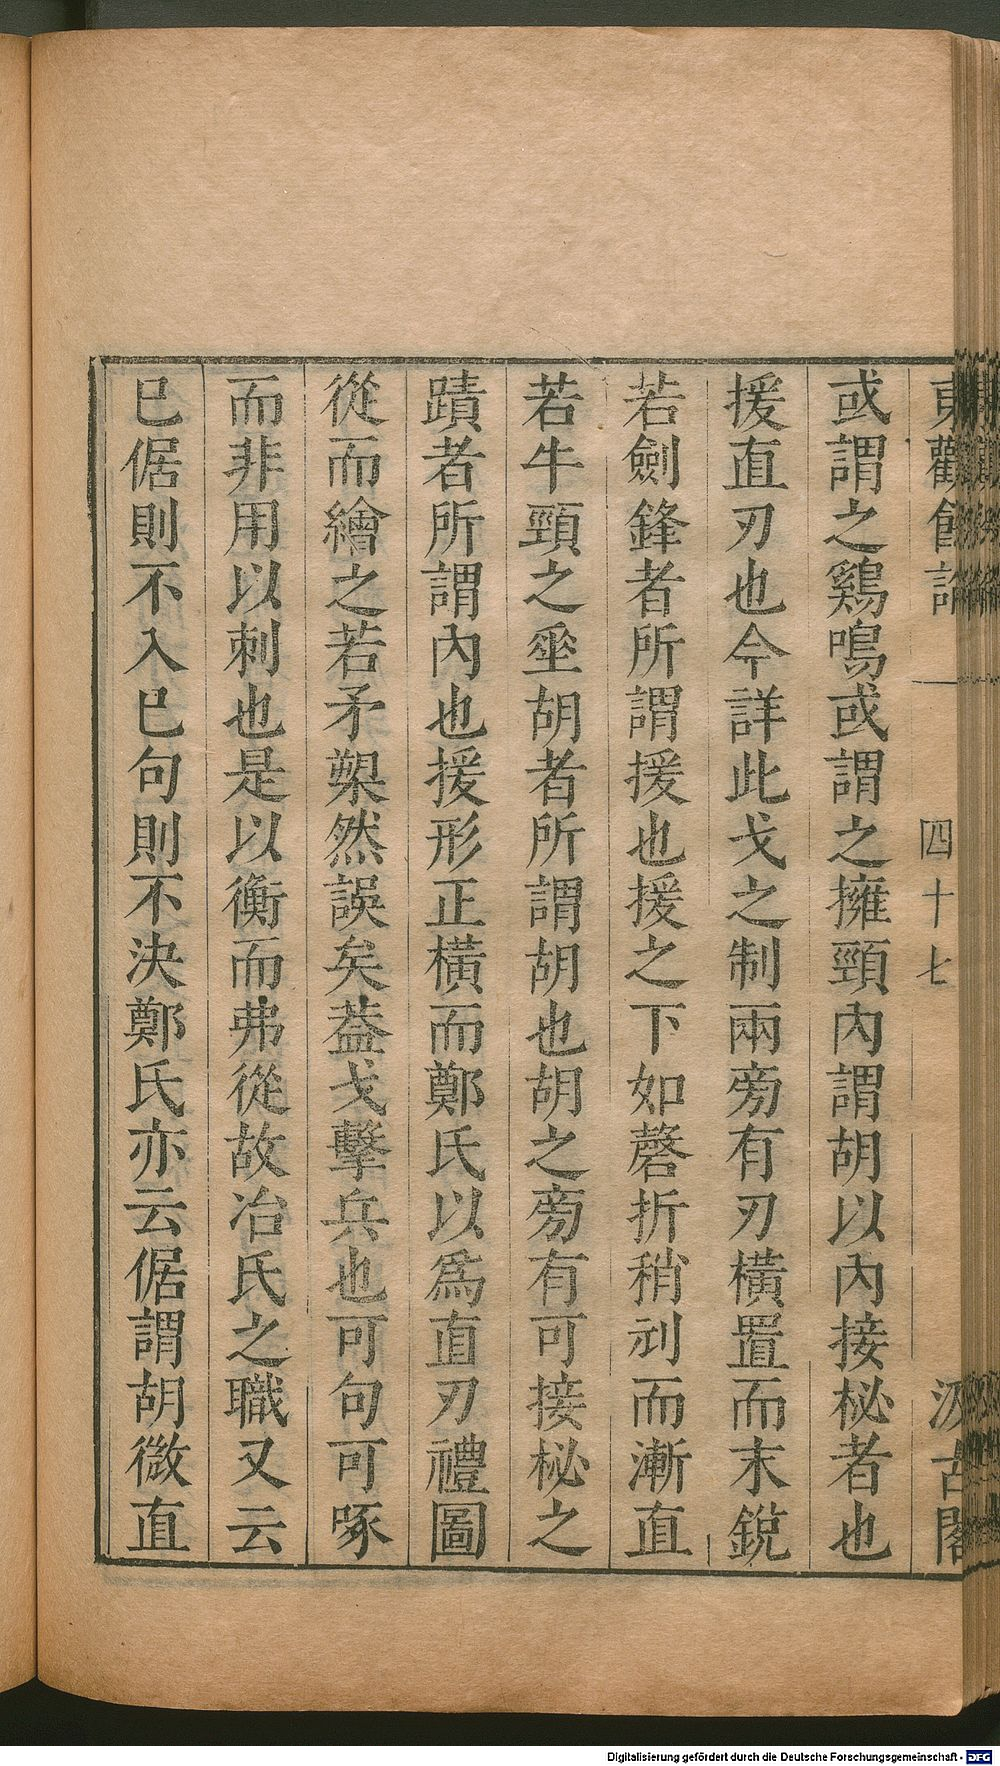 東觀餘論
四十七
汲古閣
或謂之鷄鳴或謂之擁頸內謂胡以內接柲者也
援直刃也今詳此戈之制兩旁有刃橫置而末銳
若劍鋒者所謂援也援之下如磬折稍刓而漸直
若牛頸之埀胡者所謂胡也胡之旁有可接柲之
蹟者所謂內也援形正橫而鄭氏以爲直刃禮圖
從而繪之若矛槊然誤矣葢戈擊兵也可句可啄
而非用以刺也是以衡而弗從故冶氏之職又云
巳倨則不入巳句則不決鄭氏亦云倨謂胡微直
Digitalisierung gefördert durch die Deutsche Forschungsgemeinschaft - DFG